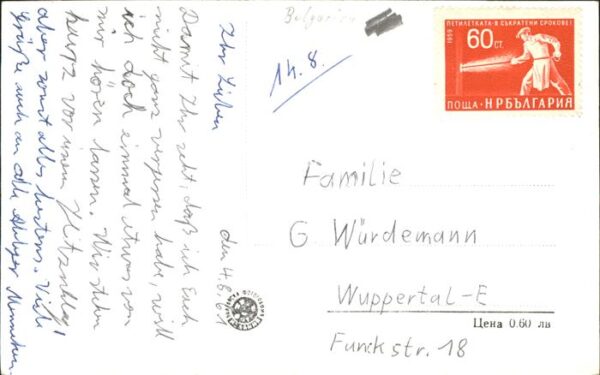 Ihr Lieben den 4.8.61
Damit Ihr seht, daß ich Euch
nicht ganz vergessen habe, will
ich doch einmal etwas von
mir hören lassen. Wir stehen
kurz vor einem Hitzschlag!
aber sonst alles bestens. Viele
Grüße auch an alle
Bulgarien
14.8.
ПЕТИЛЕТКАТА-В СЪКРАТЕНИ СРОКОВЕ!
1959
60 СТ.
ПОЩА · НРБЪЛГАРИЯ
Familie
G. Würdemann
Wuppertal-E
Цена 0.60 лв
Funckstr. 18